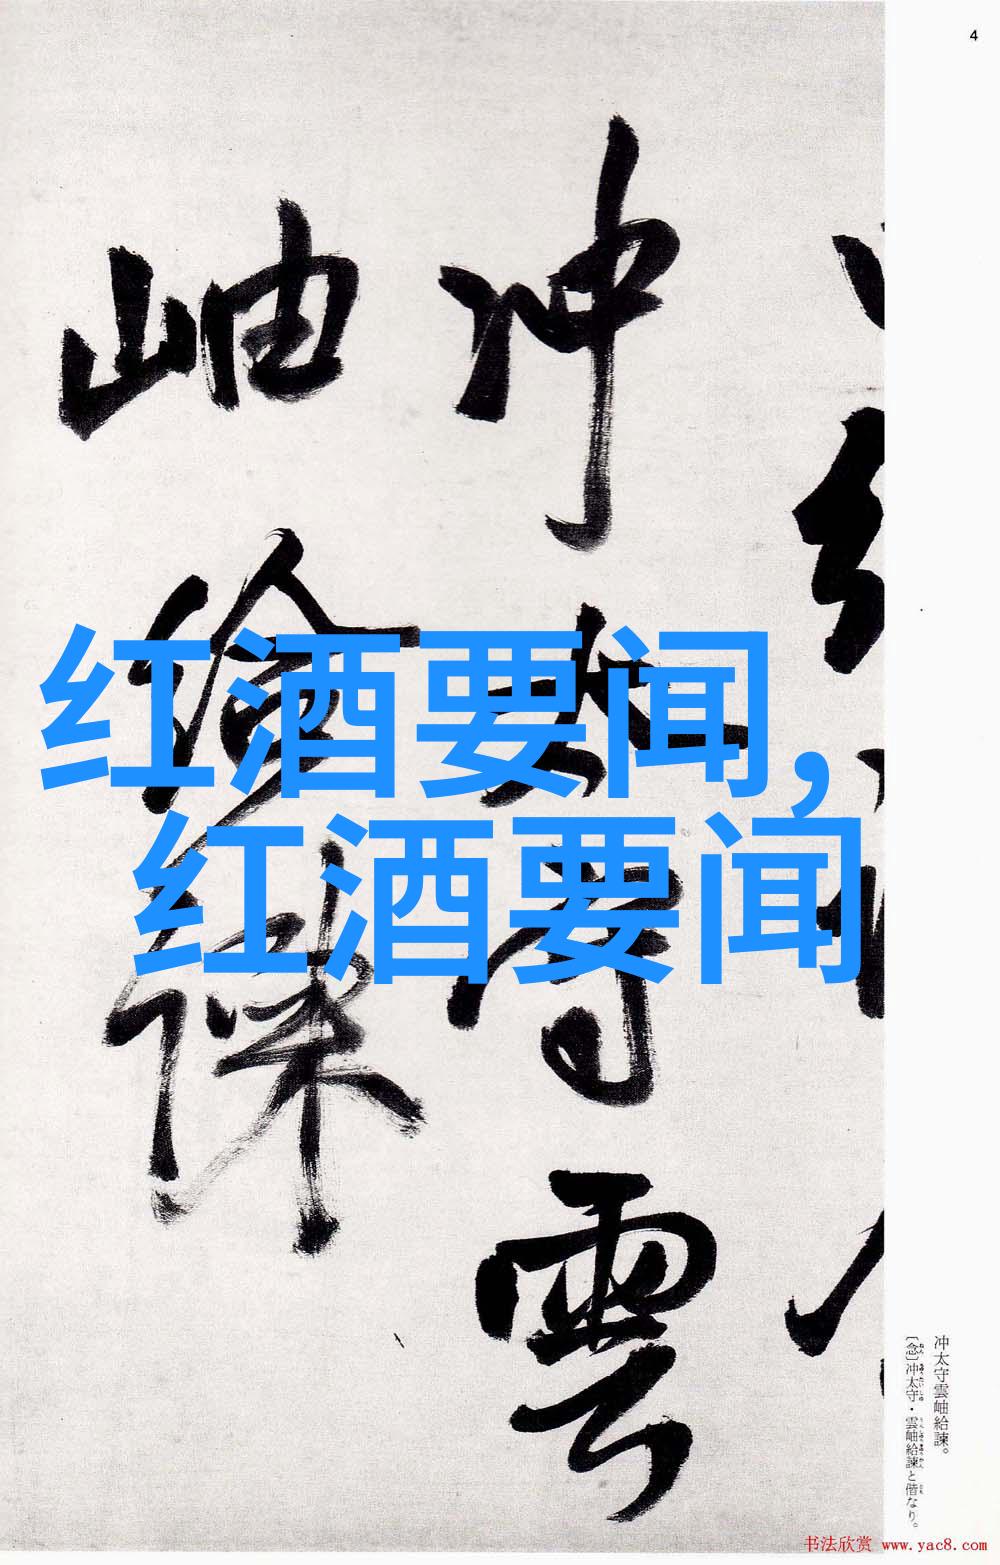 4
冲太守雲
岫給諫
红酒要闻,
红酒要闻
冲太守雲岫給諫。
〔念〕冲太守・雲岫給諫と偕なり。
书法欣赏 www.yac8.com